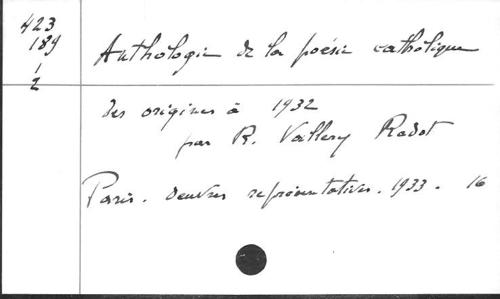 423
189
1
2
Anthologie de la poésie catholique
des origines à 1932
par R. Vallery Radot
Paris. Oeuvres représentatives. 1933. 16